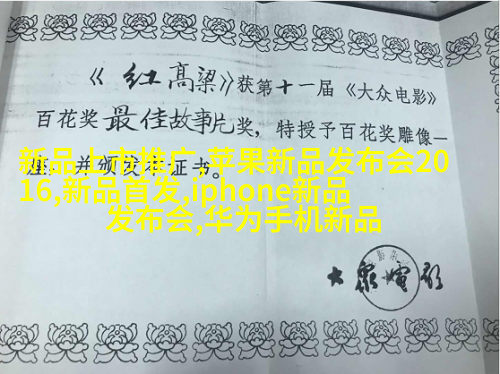 《红高粱》获第十一届《大众电影》
百花奖最佳故事片奖，特授予百花奖雕像一
座，并颁发 证书。
新品上市推广,苹果新品发布会20
16,新品首发,iphone新品
发布会,华为手机新品
大眾電影